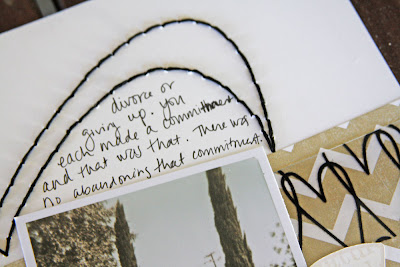 divorce or
giving up. You
each made a commitment
and that was that. There was
no abandoning that commitment.